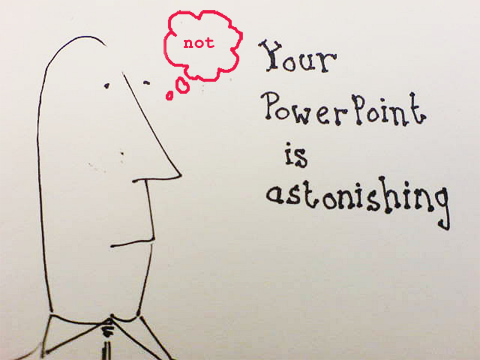 not
Your
PowerPoint
is
astonishing